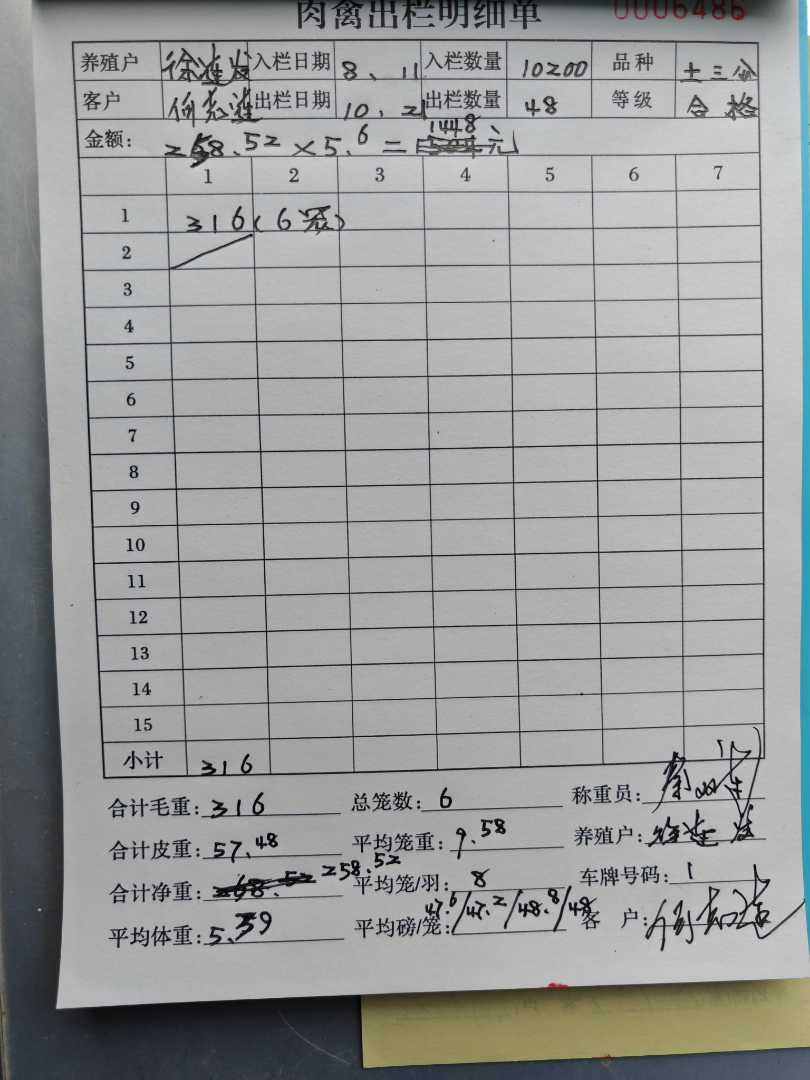 肉禽出栏明细单 0006486
养殖户 徐连发 入栏日期 8、11 入栏数量 10200 品种 土三分
客户 出栏日期 10、21 出栏数量 48 等级 合格
金额: 258.52×5.6=1448元
1 2 3 4 5 6 7
1 316(6笼)
2
3
4
5
6
7
8
9
10
11
12
13
14
15
小计 316
合计毛重: 316 总笼数: 6 称重员:
合计皮重: 57.48 平均笼重: 9.58 养殖户: 徐连发
合计净重: 258.52 平均笼/羽: 8 车牌号码: 1
平均体重: 5.39 平均磅/笼: 47.6/47.2/48.8/48 客 户: